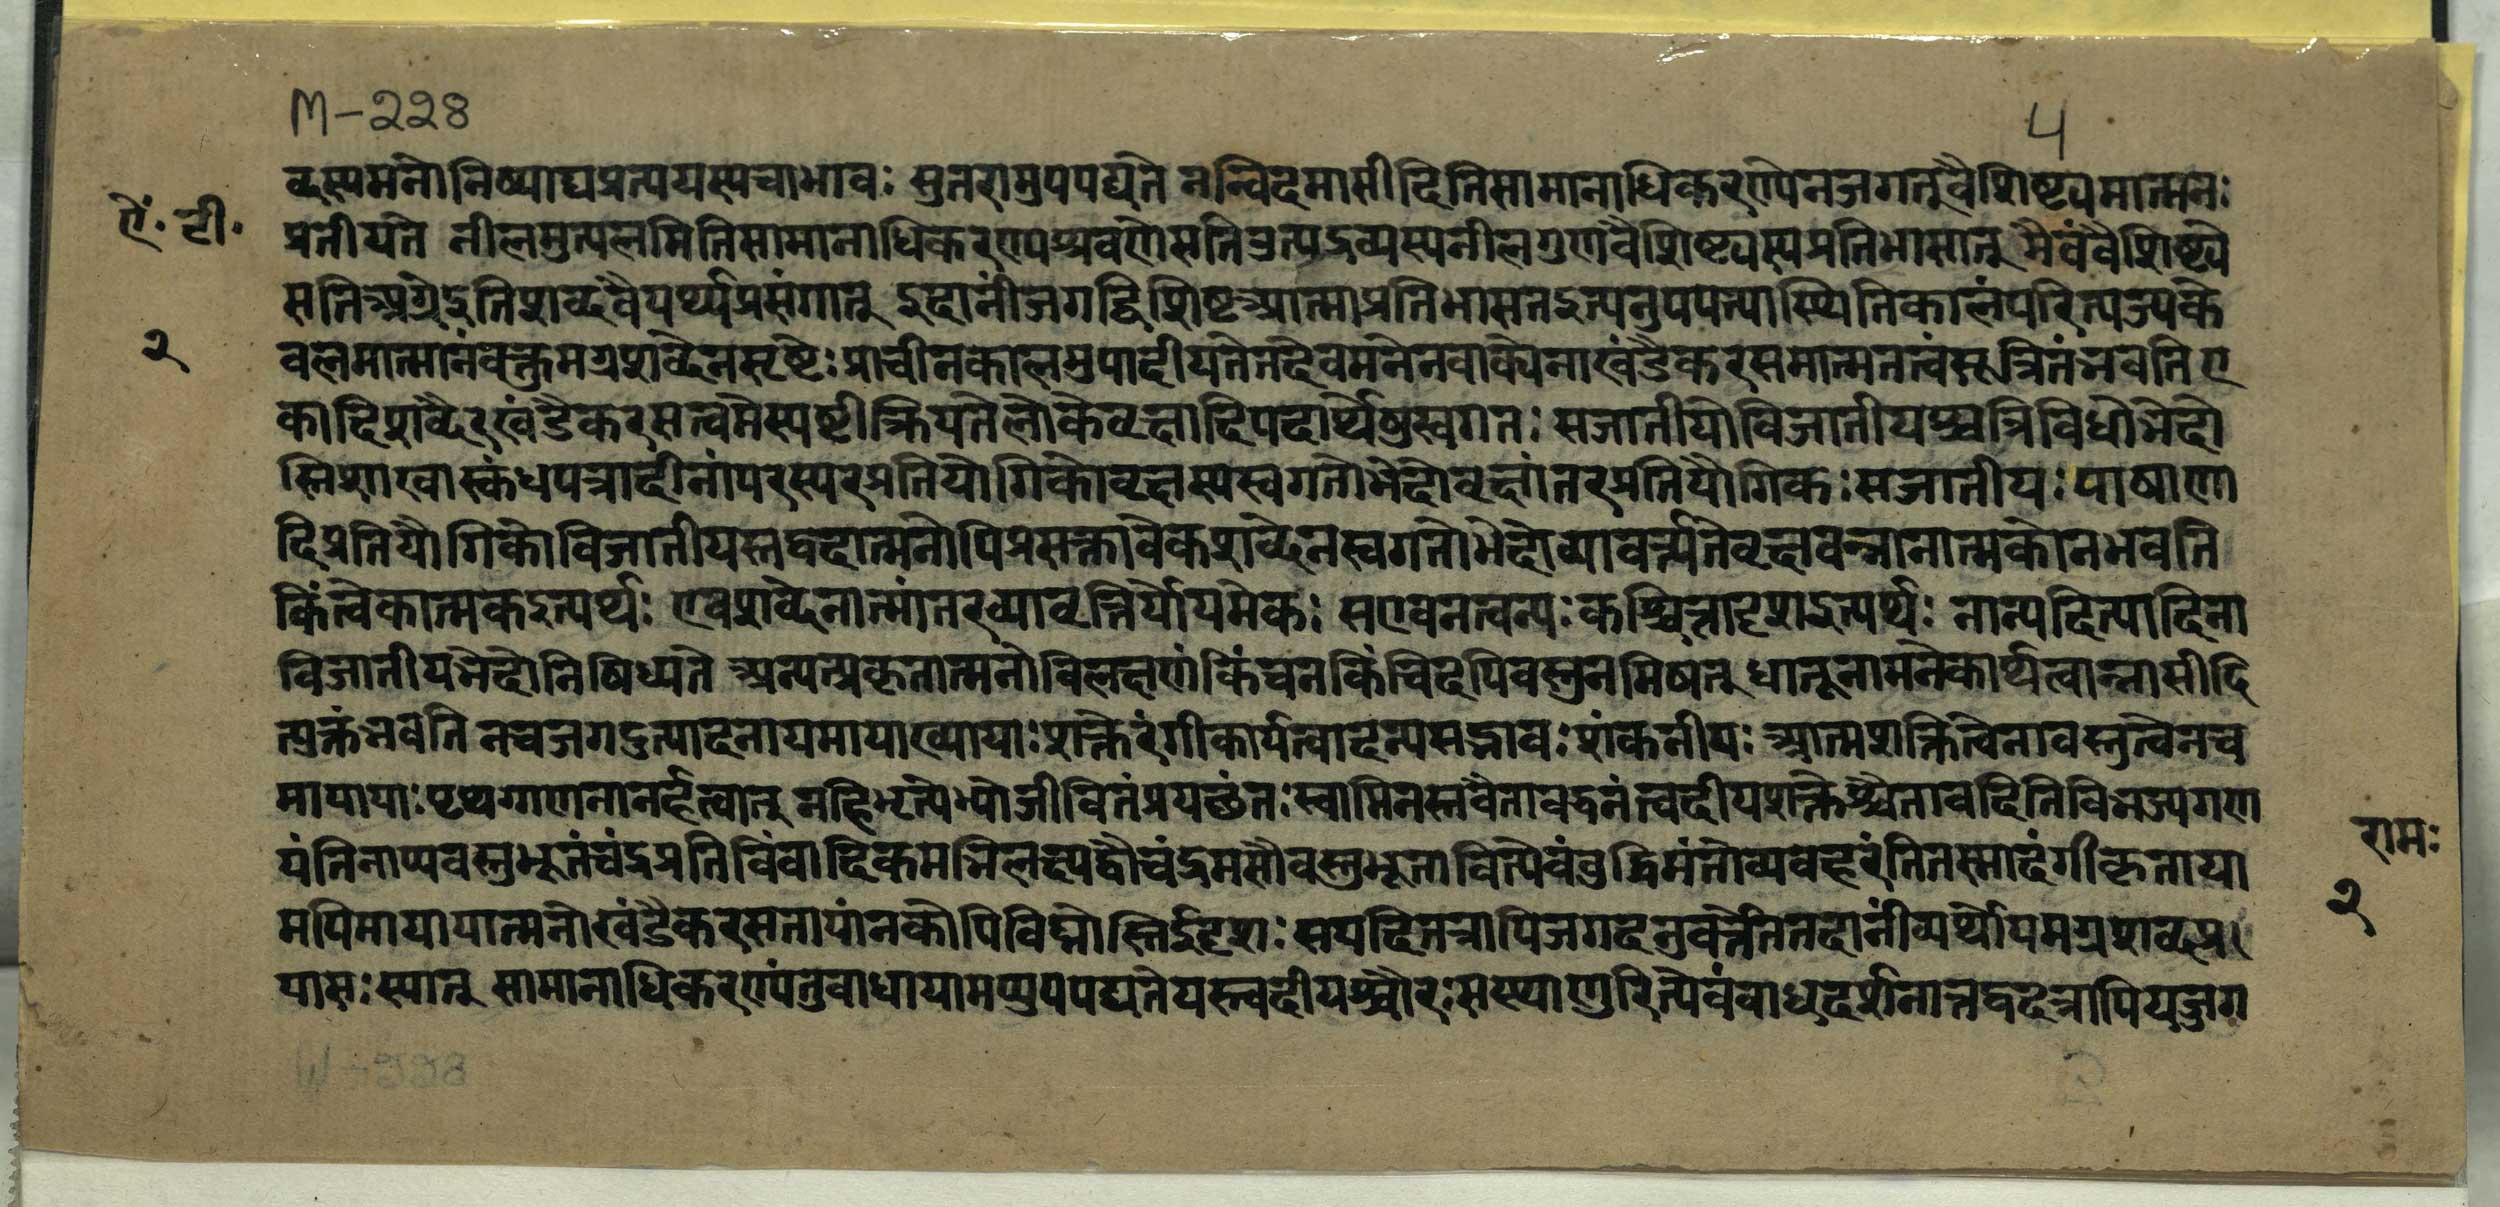 M-२२४
५
ब्दस्यमनोनिष्पाद्यप्रत्ययस्यचाभावः सुतरामुपपद्यते नन्विदमासीदितिसामानाधिकरण्येनजगत्वैशिष्ट्यमात्मनः
ऐ. टी.
प्रतीयते नीलमुत्पलमितिसामानाधिकरण्यश्रवणेसतिउत्पद्रव्यस्यनीलगुणवैशिष्ट्यस्यप्रतिभासात् मैवंवैशिष्ट्ये
सतिअग्रेइतिशब्दवैयर्थ्यप्रसंगात् इदानींजगद्विशिष्टआत्माप्रतिभासतइत्यनुपपत्यास्थितिकालंपरित्यज्यके
२
वलमात्मानंवक्तुमग्रशब्देनसृष्टेःप्राचीनकालमुपादीयतेतदेवमनेनवाक्येनाखंडैकरसमात्मतत्वंसूत्रितंभवतिए
कादिशब्दैरखंडैकरसत्वमेस्पष्टीक्रियतेलोकेवृक्षादिपदार्थेषुस्वगतः सजातीयोविजातीयश्चत्रिविधोभेदो
स्तिशाखास्कंधपत्रादीनांपरस्परप्रतियोगिकोवृक्षस्यस्वगतोभेदोवृक्षांतरप्रतियोगिकःसजातीयः पाषाणा
दिप्रतियोगिकोविजातीयस्तद्वदात्मनोपिप्रसक्तावेकशब्देनस्वगतोभेदोव्यावर्त्यतेवृक्षवन्नानात्मकोनभवति
किंत्वेकात्मकइत्यर्थः एवशब्देनात्मांतरव्यावृत्तिर्योयमेकः सएवनत्वन्यःकश्चित्तादृशइत्यर्थः नान्यदित्यादिना
विजातीयभेदोनिषिध्यते अन्यत्प्रकृतात्मनोविलक्षणंकिंचनकिंचिदपिवस्तुनमिषत् धातूनामनेकार्थत्वान्नासीदि
त्युक्तंभवति नचजगदुत्पादनायमायाख्यायाःशक्तेरंगीकार्यत्वादन्यसद्भावःशंकनीयः आत्मशक्तित्वेनावस्तुत्वेनच
मायायाःपृथग्गणनानर्हत्वात् नहिभृत्येभ्योजीवितंप्रयच्छंतःस्वामिनस्तवैतावद्धनंत्वदीयशक्तेश्चैतावदितिविभज्यगण
यंतिनाप्यवस्तुभूतंचंद्रप्रतिविंवादिकमभिलक्ष्यद्वौचंद्रमसौवस्तुभूतावित्येवंवुद्धिमंतोव्यवहरंतितस्मादंगीकृताया
रामः
मपिमायायात्मनोखंडैकरसतायांनकोपिविघ्नोस्तिईदृशः सयदितत्रापिजगदनुवर्त्तेततदानींव्यर्थोयमग्रशब्दप्र
२
यासःस्यात् सामानाधिकरण्यंतुवाधायामप्युपपद्यतेयस्त्वदीयश्चौरःसस्थाणुरित्येवंवाधदर्शनात्तद्वदत्रापियज्जग